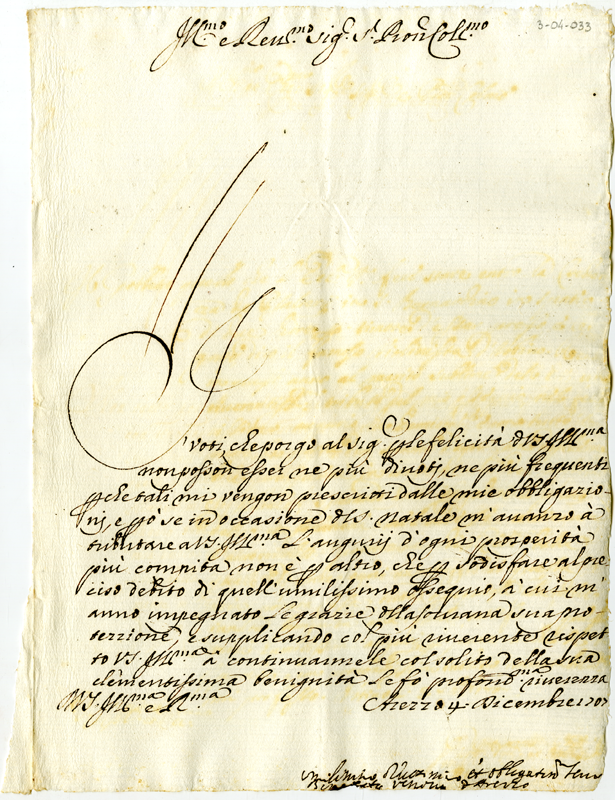 3-04-033
Ill.mo e Reu.mo Sig.r S.r Pron Coll.mo
I voti, che porgo al Sig.re p le felicità di V.S. Ill.ma
non posson esser ne più diuoti, ne più frequenti
p che tali mi vengon prescritti dalle mie obbligazio-
ni, e p ò se in occasione del S. Natale m'auanzo à
tributare a V.S. Ill.ma L'augurij d'ogni prosperità
più compita non è p altro, che p sodisfare al pre-
ciso debito di quell'umilissimo ossequio, à cui m'
anno impegnato le grazie della sourana sua pro-
tezzione, e supplicando col più riuerente rispet
to V.S. Ill.ma à continuarmele col solito della sua
clementissima benignità le fò profond.ma riuerenza
D V.S. Ill.ma e R.ma Arezzo 4 Dicembre 1707
Umilissimo et obbligatiss
d'Arezzo